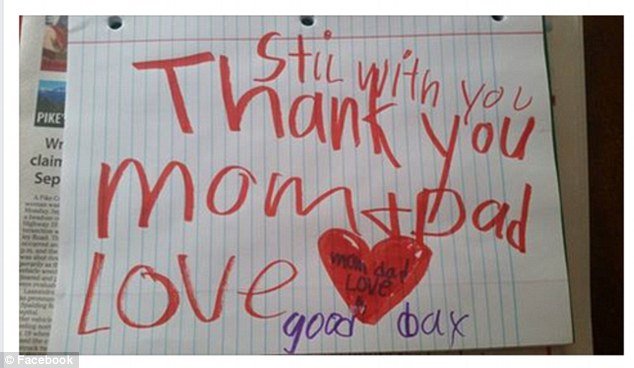 Stil with you
Thank you
mom + Dad
LOVe
mom dad
LOVe
good bax
PIKE'
Wr
clain
Sep
© Facebook